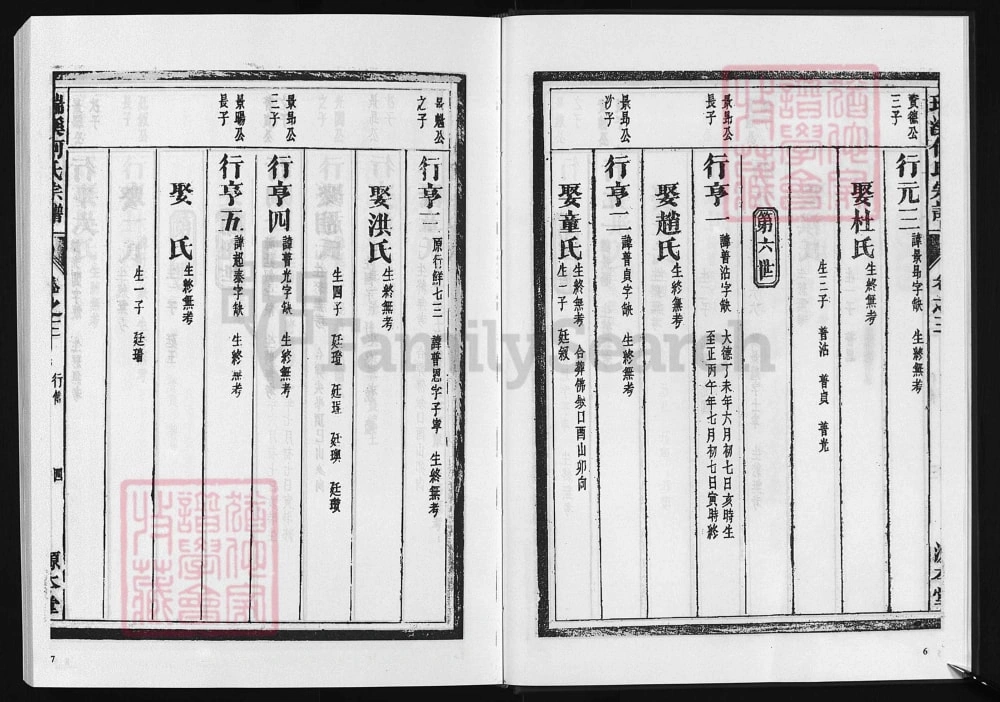 寶德公
三子
行元二 諱景昴字缺 生終無考
娶杜氏 生終無考
生三子 普沽 普貞 普光
第六世
景昴公
長子
行亨一 諱普沽字缺 大德丁未年六月初七日亥時生
至正丙午年七月初七日寅時終
娶趙氏 生終無考 合葬佛嶺口酉山卯向
景昴公
次子
行亨二 諱普貞字缺 生終無考
娶童氏 生終無考
生一子 廷敘
源本堂
6
景魁公
之子
行亨三 原行鮮七三 諱普恩字子寧 生終無考
娶洪氏 生終無考
生四子 廷瓊 廷珵 廷璵 廷瓚
景昴公
三子
行亨四 諱普光字缺 生終無考
景暘公
長子
行亨五 諱起秦字缺 生終無考
娶 氏 生終無考
生一子 廷璠
瑞溪何氏宗譜
卷之三
行傳
四
源本堂
7
FamilySearch